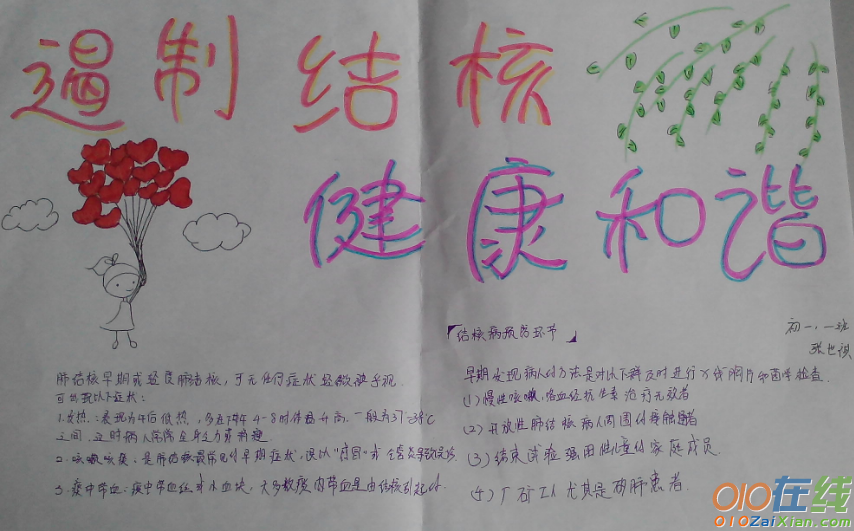 遏制结核
健康和谐
初一，一班
肺结核早期或轻度肺结核，可无任何症状轻微
可出现以下症状：
1.发热：表现为午后低热，多在下午4-8时体温升高，一般为37-38℃
之间，这时病人常常全身乏力
2.咳嗽咳痰，是肺结核最常见的早期症状，误以"感冒"或
3.痰中带血：痰中带血丝或小血块，大多数痰内带血是由结核引起的
「结核病 环节」
早期发现病人的方法是对以下 及时进行X线胸片和菌学检查
(1)慢性咳嗽，咯血经抗生素治疗无效者
(2)开放性肺结核病人周围的接触者
(3)结素试验强阳性儿童的家庭成员
(4)厂矿工人尤其是矽肺患者
010在线
010ZaiXian.com